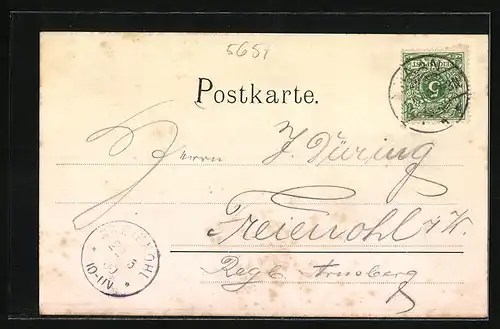 5651
Postkarte.
Herrn J. Düring
Freienohl i/W.
Regb. Arnsberg
5
FREIENOHL
10-11V